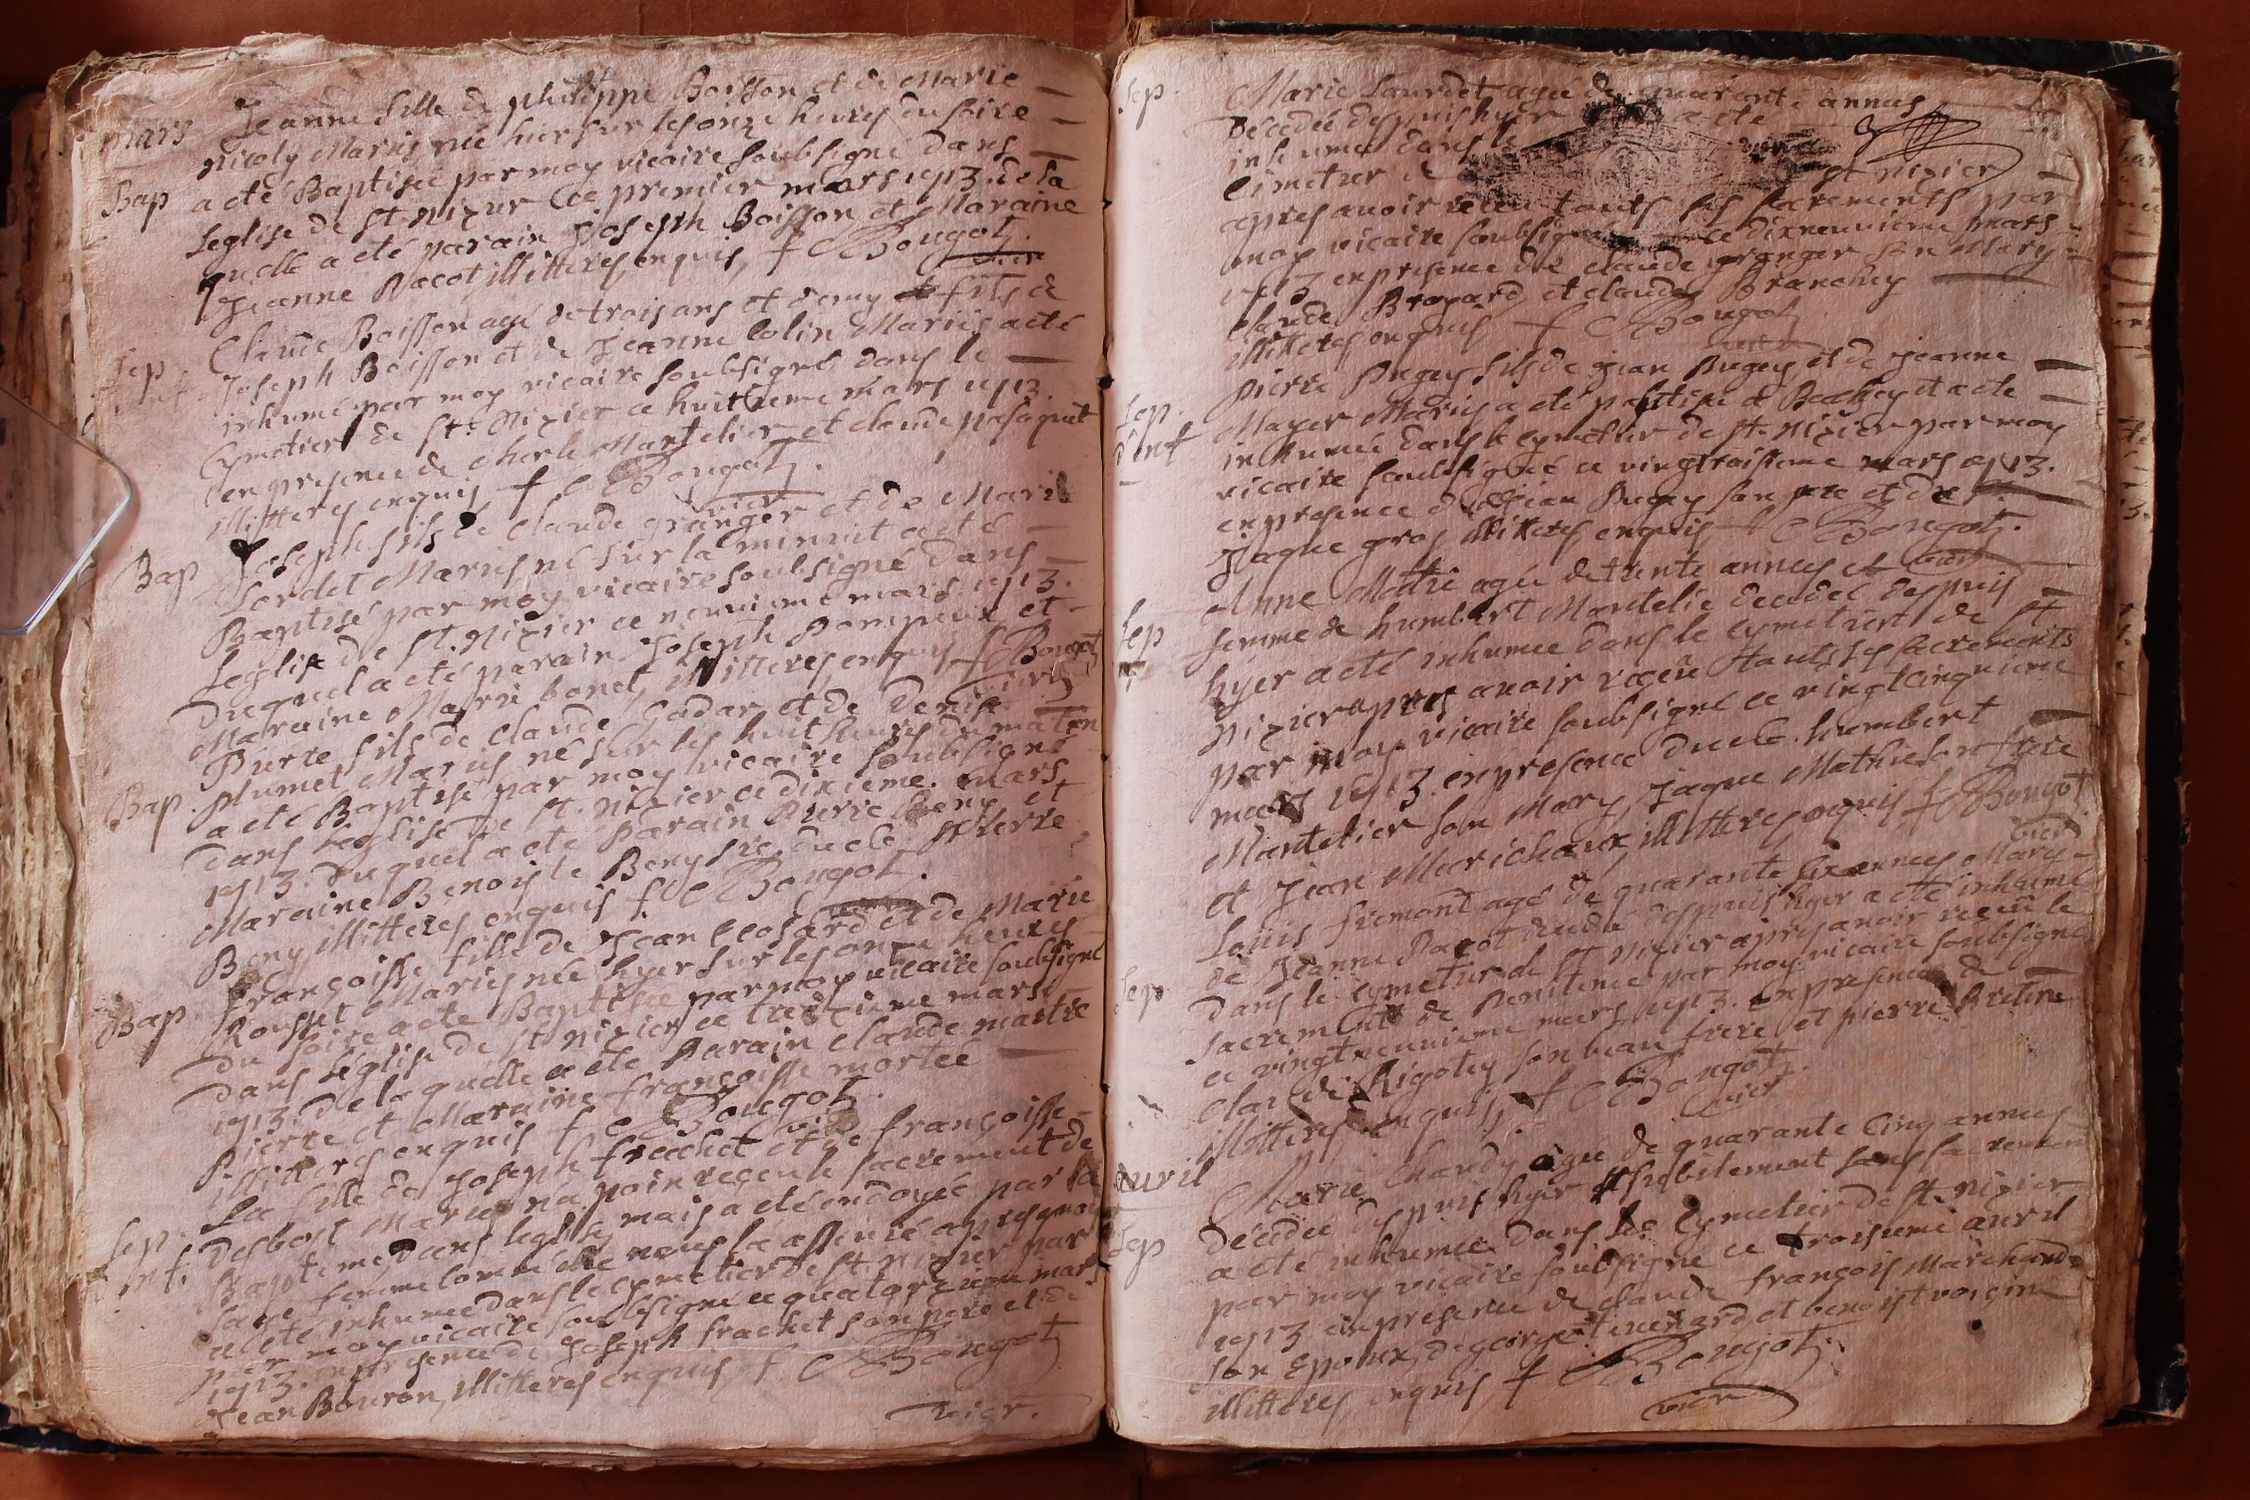 mars
Jeanne fille de philippe Boisson et de Marie
nicoly Mariés née hier sur les onze heures du soire
Bap
a été Baptisée par moy vicaire soubsigné dans
Leglise de st nizier ce premier mars 1713. de la
quelle a été parain Joseph Boisson et Maraine
Jeanne Pacot illitteres enquis f C Bougot
vier
Sep
Claude Boisson agé de trois ans et demy fils de
Joseph Boisson et de Jeanne Colin Mariés a été
inhumé par moy vicaire soubsigné dans le
Cymetiere de st. Nizier ce huitieme mars 1713
en presence de Charle Martelier et claude
illitteres enquis f C Bougot.
vier
Bap
Joseph fils de claude granger et de Marie
Lordet Mariés né sur la minuit a été
Baptisé par moy vicaire soubsigné dans
Leglise de st. Nizier ce neuvieme mars 1713.
Duquel a été parain Joseph Pompeux et
Maraine Marie bonet, illitteres enquis f C Bougot
vier
Pierre fils de claude Godar et de Denise
Bap.
plumet Mariés né sur les huit heures du matin
a été Baptisé par moy vicaire soubsigné
dans Leglise de st. nizier ce dixieme. mars
1713. Duquel a été Parain Pierre Beny et
Maraine Benoiste Beny sre. dudt. Pierre
Beny illitteres enquis f C Bougot.
vier
Françoisse fille de Jean Cosard et de Marie
Bap
Rousset Mariés née hyer sur les onze heures
du soire a été Baptisée par moy vicaire soubsigné
dans Léglise de st nizier ce treizieme mars
1713. de la quelle a été Parain claude maitre
Pierre et Maraine françoisse mortée
illitteres enquis f C Bougot.
vier
La fille de Joseph frachet et de françoisse
Sep.
Desbort Mariés na poin reçeu le sacrement de
Enf.
Baptême Dans leglise, mais a été endoyée par la
sage femme comme elle nous la assuré apres quoi
a été inhumée dans le cymetier de st. nizier par
par moy vicaire soubsigné ce quatorzieme mars
1713. en presence de Joseph frachet son pere et de
Jean Bouron, illitteres enquis, f. C Bougot
vier.
Sep.
Marie Lourdet agée de quarante années
Décédée despuis hyer a été
inhumée dans le
Cimetier de st nizier
apres avoir receu touts ses sacrements par
moy vicaire soubsigné ce dixneuvieme mars
1713 en presence de claude granger son Mary
claude Broyard et claude Branchy
illitteres enquis f C Bougot
vier
Pierre Pugey fils de jean Bugey et de Jeanne
Sep.
Mayer Mariés a été et a été
Enf
inhumé dans le cymetier de st. nizier par moy
vicaire soubsigné ce vingtroisieme mars 1713.
en presence de Jean Pugey son pere et de
Jaque gros illitteres enquis f C Bougot.
vier
Anne Mathie agée de trente années et
Sep
femme de humbert Mantelie decedeé despuis
hyer a été inhumée dans le cymetiere de st
nizier apres avoir reçeu touts ses sacrements
par moy vicaire soubsigné ce vingtcinquieme
mars 1713. en presence dudt. humbert
Mantelier son Mary Jaque Mathie son frere
et Jean Marichaux illitteres enquis f C Bougot
vier
Louis fremont agé de quarante six années Mary
de Jeanne Pacot decedé despuis hyer a été inhumé
Sep
Dans le cymetier de st nizier apres avoir receu le
sacrement de Penitence par moy vicaire soubsigné
ce vingtneuvieme mars 1713. En presence de
claude Rigoley son beau frere et pierre
illitteres enquis, f C Bougot
vier
avril
Marie Chardy agée de quarante cinq années
Sep
Décédée despuis hyer subitement sans sacrement
a été inhumée dans le cymetier de st. nizier
par moy vicaire soubsigné ce troisieme avril
1713 en presence de claude françois Marchand
son Epoux, de george tenard et benoist voisin
illitteres, enquis f C Bougot.
vier